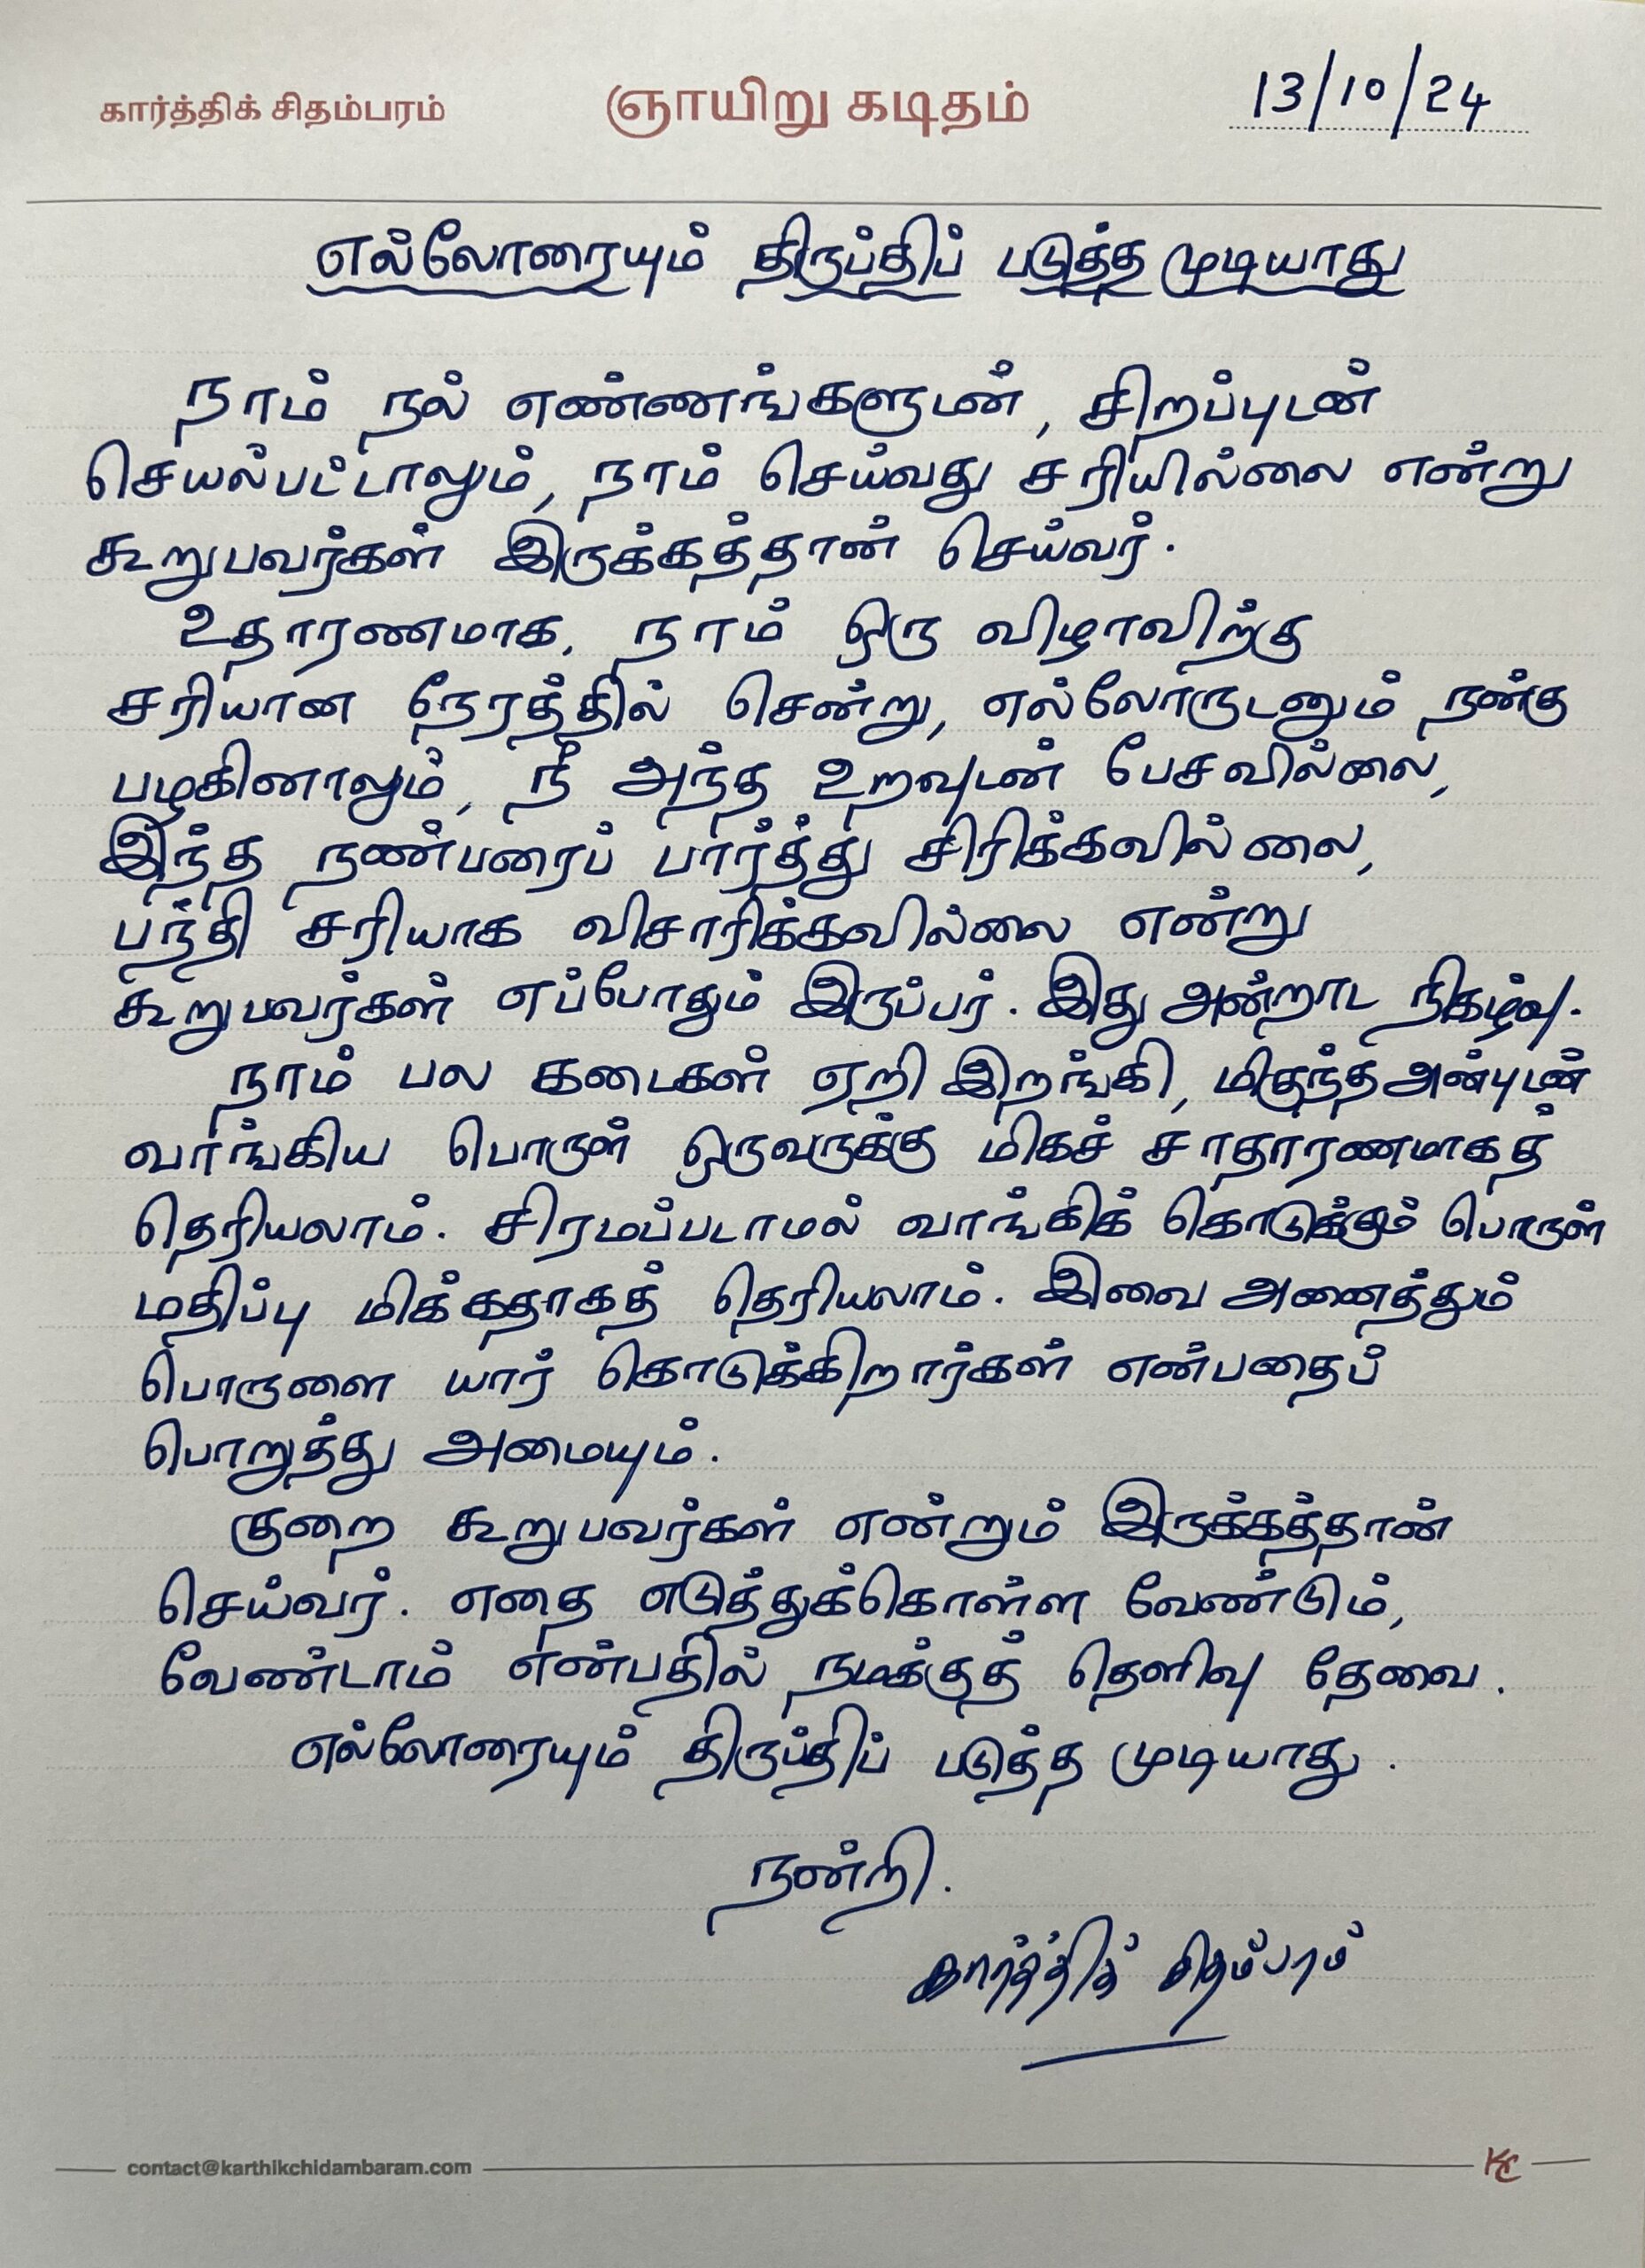 கார்த்திக் சிதம்பரம் ஞாயிறு கடிதம் 13/10/24
எல்லோரையும் திருப்திப் படுத்த முடியாது
நாம் நல் எண்ணங்களுடன், சிறப்புடன்
செயல்பட்டாலும், நாம் செய்வது சரியில்லை என்று
கூறுபவர்கள் இருக்கத்தான் செய்வர்.
உதாரணமாக, நாம் ஒரு விழாவிற்கு
சரியான நேரத்தில் சென்று, எல்லோருடனும் நன்கு
பழகினாலும், நீ அந்த உறவுடன் பேசவில்லை,
இந்த நண்பரைப் பார்த்து சிரிக்கவில்லை,
பந்தி சரியாக விசாரிக்கவில்லை என்று
கூறுபவர்கள் எப்போதும் இருப்பர். இது அன்றாட நிகழ்வு.
நாம் பல கடைகள் ஏறி இறங்கி, மிகுந்த அன்புடன்
வாங்கிய பொருள் ஒருவருக்கு மிகச் சாதாரணமாகத்
தெரியலாம். சிரமப்படாமல் வாங்கிக் கொடுக்கும் பொருள்
மதிப்பு மிக்கதாகத் தெரியலாம். இவை அனைத்தும்
பொருளை யார் கொடுக்கிறார்கள் என்பதைப்
பொறுத்து அமையும்.
குறை கூறுபவர்கள் என்றும் இருக்கத்தான்
செய்வர். எதை எடுத்துக்கொள்ள வேண்டும்,
வேண்டாம் என்பதில் நமக்குத் தெளிவு தேவை.
எல்லோரையும் திருப்திப் படுத்த முடியாது.
நன்றி.
கார்த்திக் சிதம்பரம்
contact@karthikchidambaram.com KC